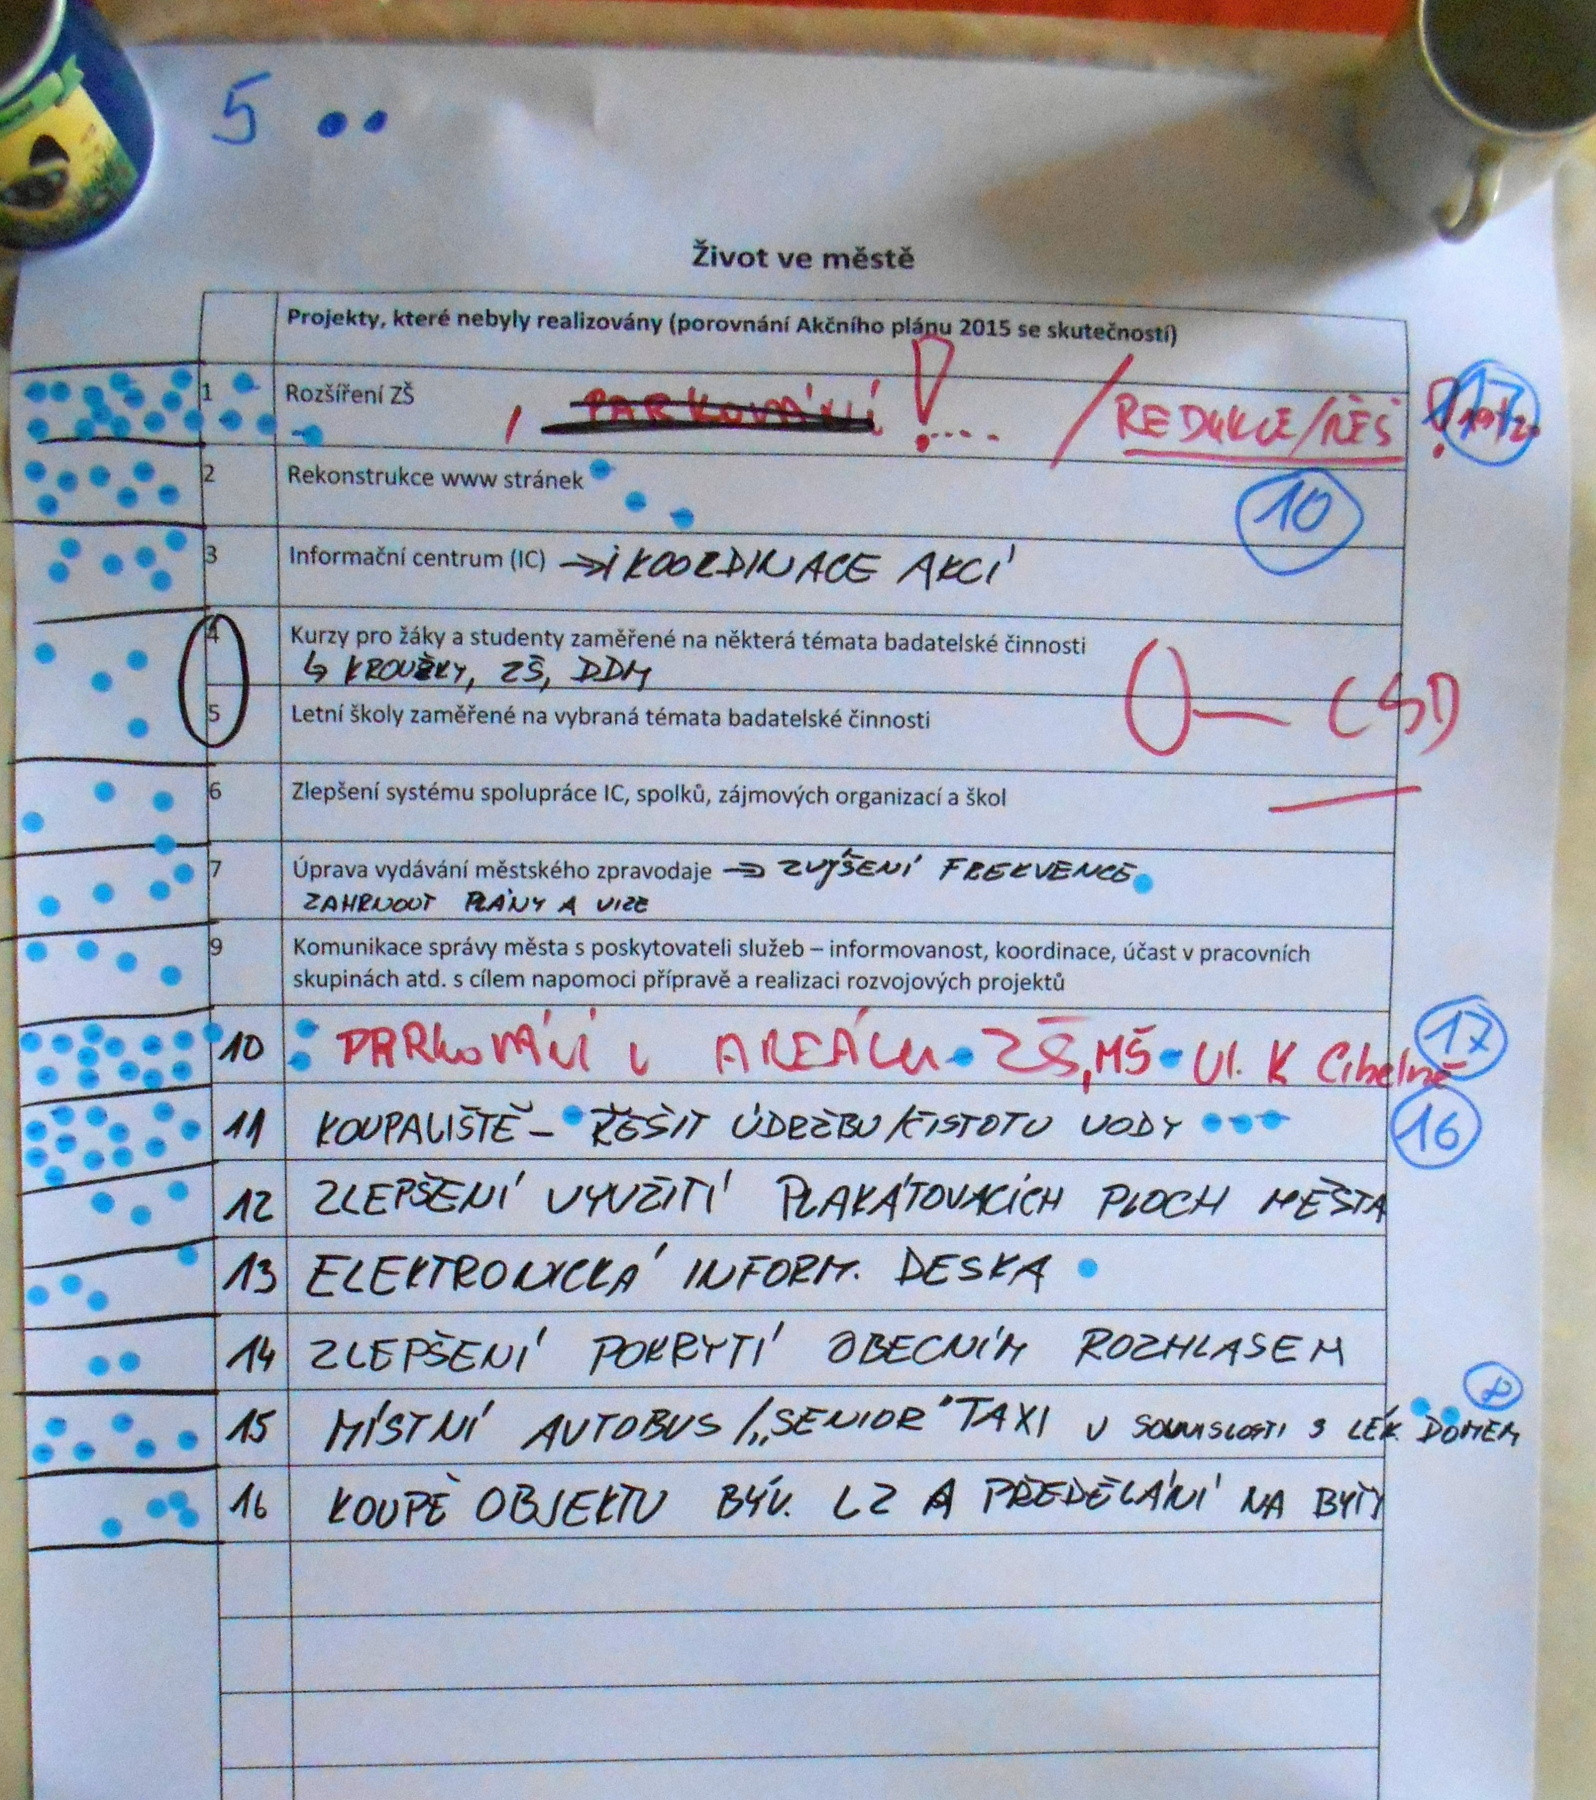 5
Život ve městě
Projekty, které nebyly realizovány (porovnání Akčního plánu 2015 se skutečností)
1 Rozšíření ZŠ , PARKOVÁNÍ !.... / REDUKCE/ŘEŠ ! 17
2 Rekonstrukce www stránek 10
3 Informační centrum (IC) → i KOORDINACE AKCÍ
4 Kurzy pro žáky a studenty zaměřené na některá témata badatelské činnosti
↳ KROUŽKY, ZŠ, DDM
CSD
5 Letní školy zaměřené na vybraná témata badatelské činnosti
6 Zlepšení systému spolupráce IC, spolků, zájmových organizací a škol
7 Úprava vydávání městského zpravodaje → ZVÝŠENÍ FREKVENCE
ZAHRNOUT PLÁNY A VIZE
9 Komunikace správy města s poskytovateli služeb – informovanost, koordinace, účast v pracovních
skupinách atd. s cílem napomoci přípravě a realizaci rozvojových projektů
10 PARKOVÁNÍ U AREÁLU ZŠ, MŠ Ul. K Cihelně 17
11 KOUPALIŠTĚ – ŘEŠIT ÚDRŽBU/ČISTOTU VODY 16
12 ZLEPŠENÍ VYUŽITÍ PLAKÁTOVACÍCH PLOCH MĚSTA
13 ELEKTRONICKÁ INFORM. DESKA
14 ZLEPŠENÍ POKRYTÍ OBECNÍM ROZHLASEM
8
15 MÍSTNÍ AUTOBUS /„SENIOR" TAXI V SOUVISLOSTI S LÉK. DOMEM
16 KOUPĚ OBJEKTU BÝV. LZ A PŘEDĚLÁNÍ NA BYTY